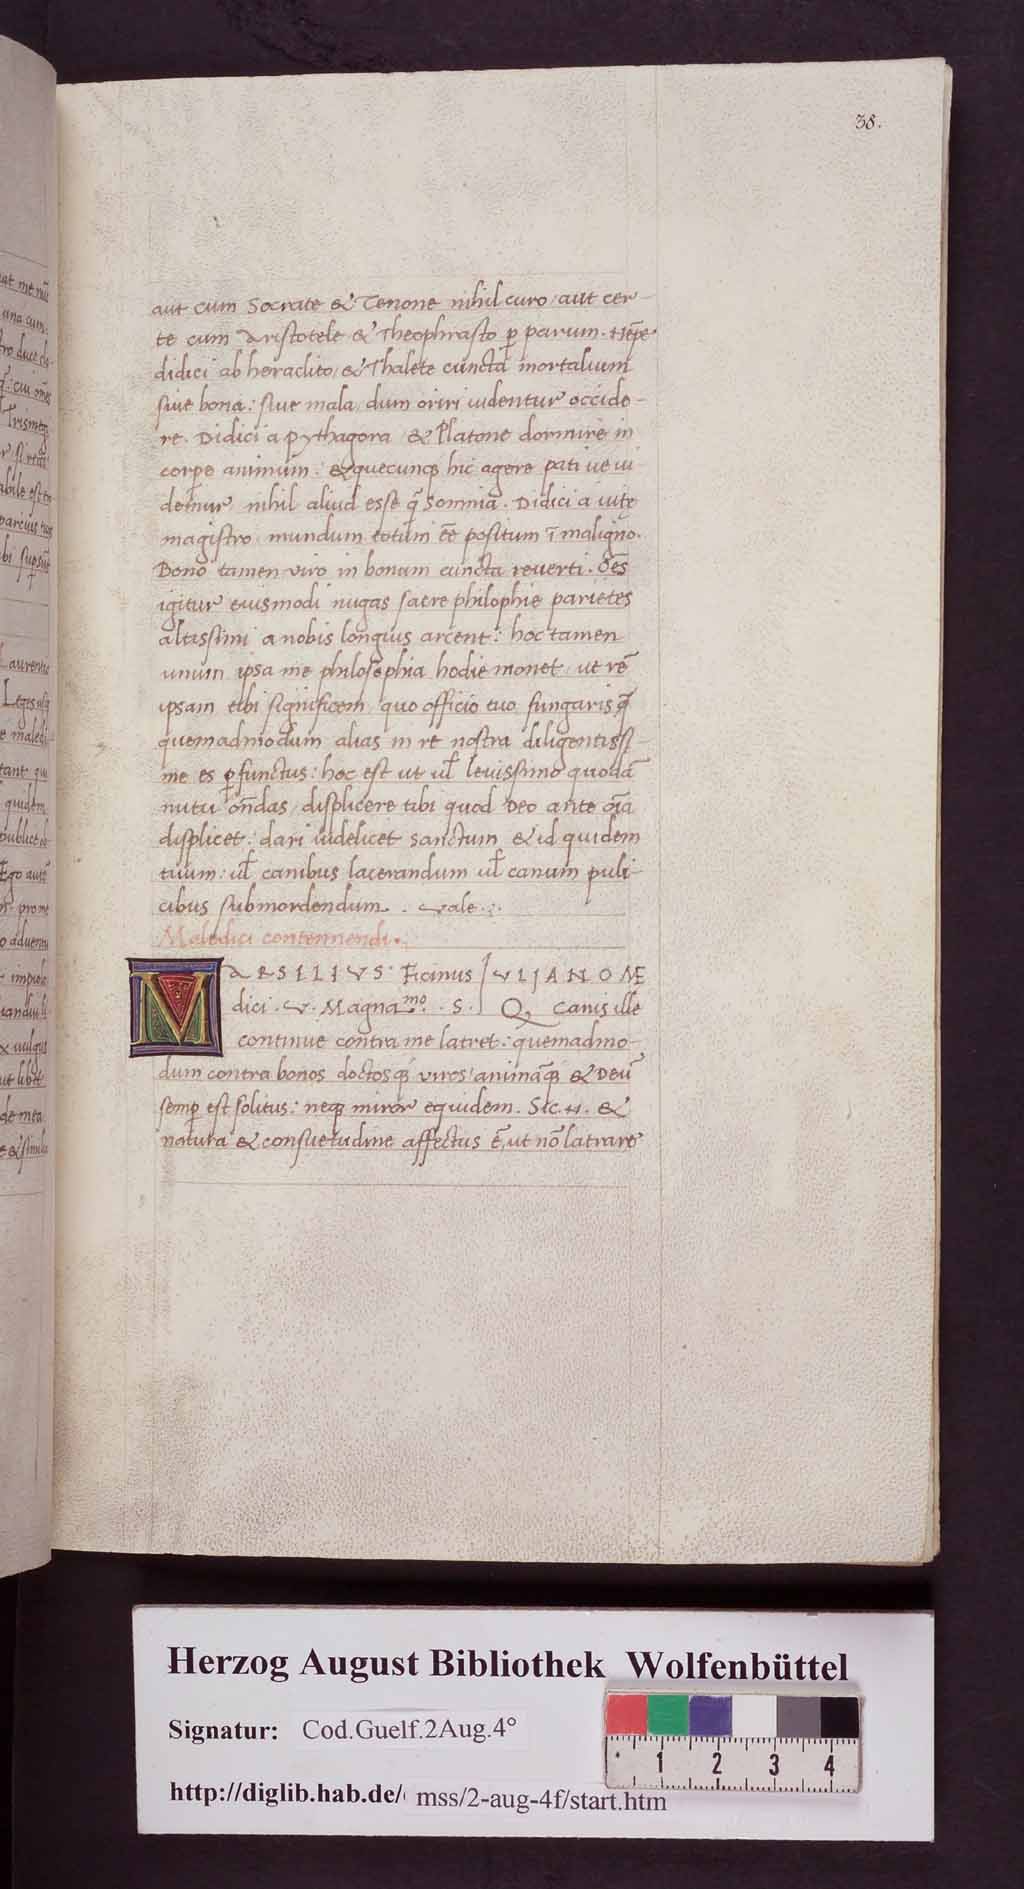 38.
aut cum Socrate & Zenone nihil curo / aut cer-
te cum Aristotele & Theophrasto ꝑ parum. Nēpe
didici ab heraclito / & Thalete cuncta mortalium
siue bona: siue mala / dum oriri uidentur occide-
re. Didici a pythagora / & Platone dormire in
corpe animum: & quecunqꝫ hic agere pati ue ui-
demur nihil aliud esse q̄ somnia. Didici a uitę
magistro mundum totum eē positum ī maligno.
Bono tamen viro in bonum cuncta reuerti. Oēs
igitur euismodi nugas sacre philophie parietes
altissimi a nobis longius arcent: hoc tamen
unum ipsa me philosophia hodie monet / ut rē
ipsam tibi significem / quo officio tuo fungaris q̄
quemadmodum alias in re nostra diligentissi-
me es ꝑfunctus: hoc est ut ul̄ leuissimo quodā
nutu on̄das / displicere tibi quod Deo ante oīa
displicet: dari uidelicet sanctum & id quidem
tuum: ul̄ canibus lacerandum ul̄ canum puli-
cibus submordendum. Vale.
Maledici contemnendi.
MARSILIVS Ficinus IVLIANO ME
dici. V. Magnaᵐᵒ. S. Q Canis ille
continue contra me latret: quemadmo-
dum contra bonos doctosqꝫ viros / animāqꝫ & Deū
semꝑ est solitus: neqꝫ miror equidem. Sic. N. &
natura & consuetudine affectus ē, ut nō latrare
Herzog August Bibliothek Wolfenbüttel
Signatur: Cod.Guelf.2Aug.4°
http://diglib.hab.de/ mss/2-aug-4f/start.htm
1 2 3 4